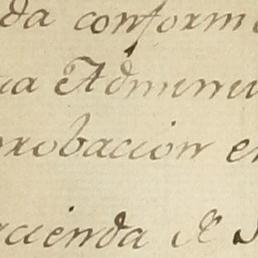 da conform
ia Admini
probacion e
cienda de